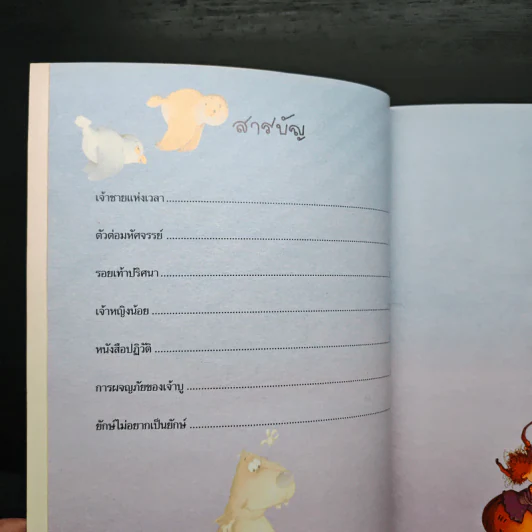 สารบัญ
เจ้าชายแห่งเวลา
ตัวต่อมหัศจรรย์
รอยเท้าปริศนา
เจ้าหญิงน้อย
หนังสือปฏิวัติ
การผจญภัยของเจ้าปู
ยักษ์ไม่อยากเป็นยักษ์